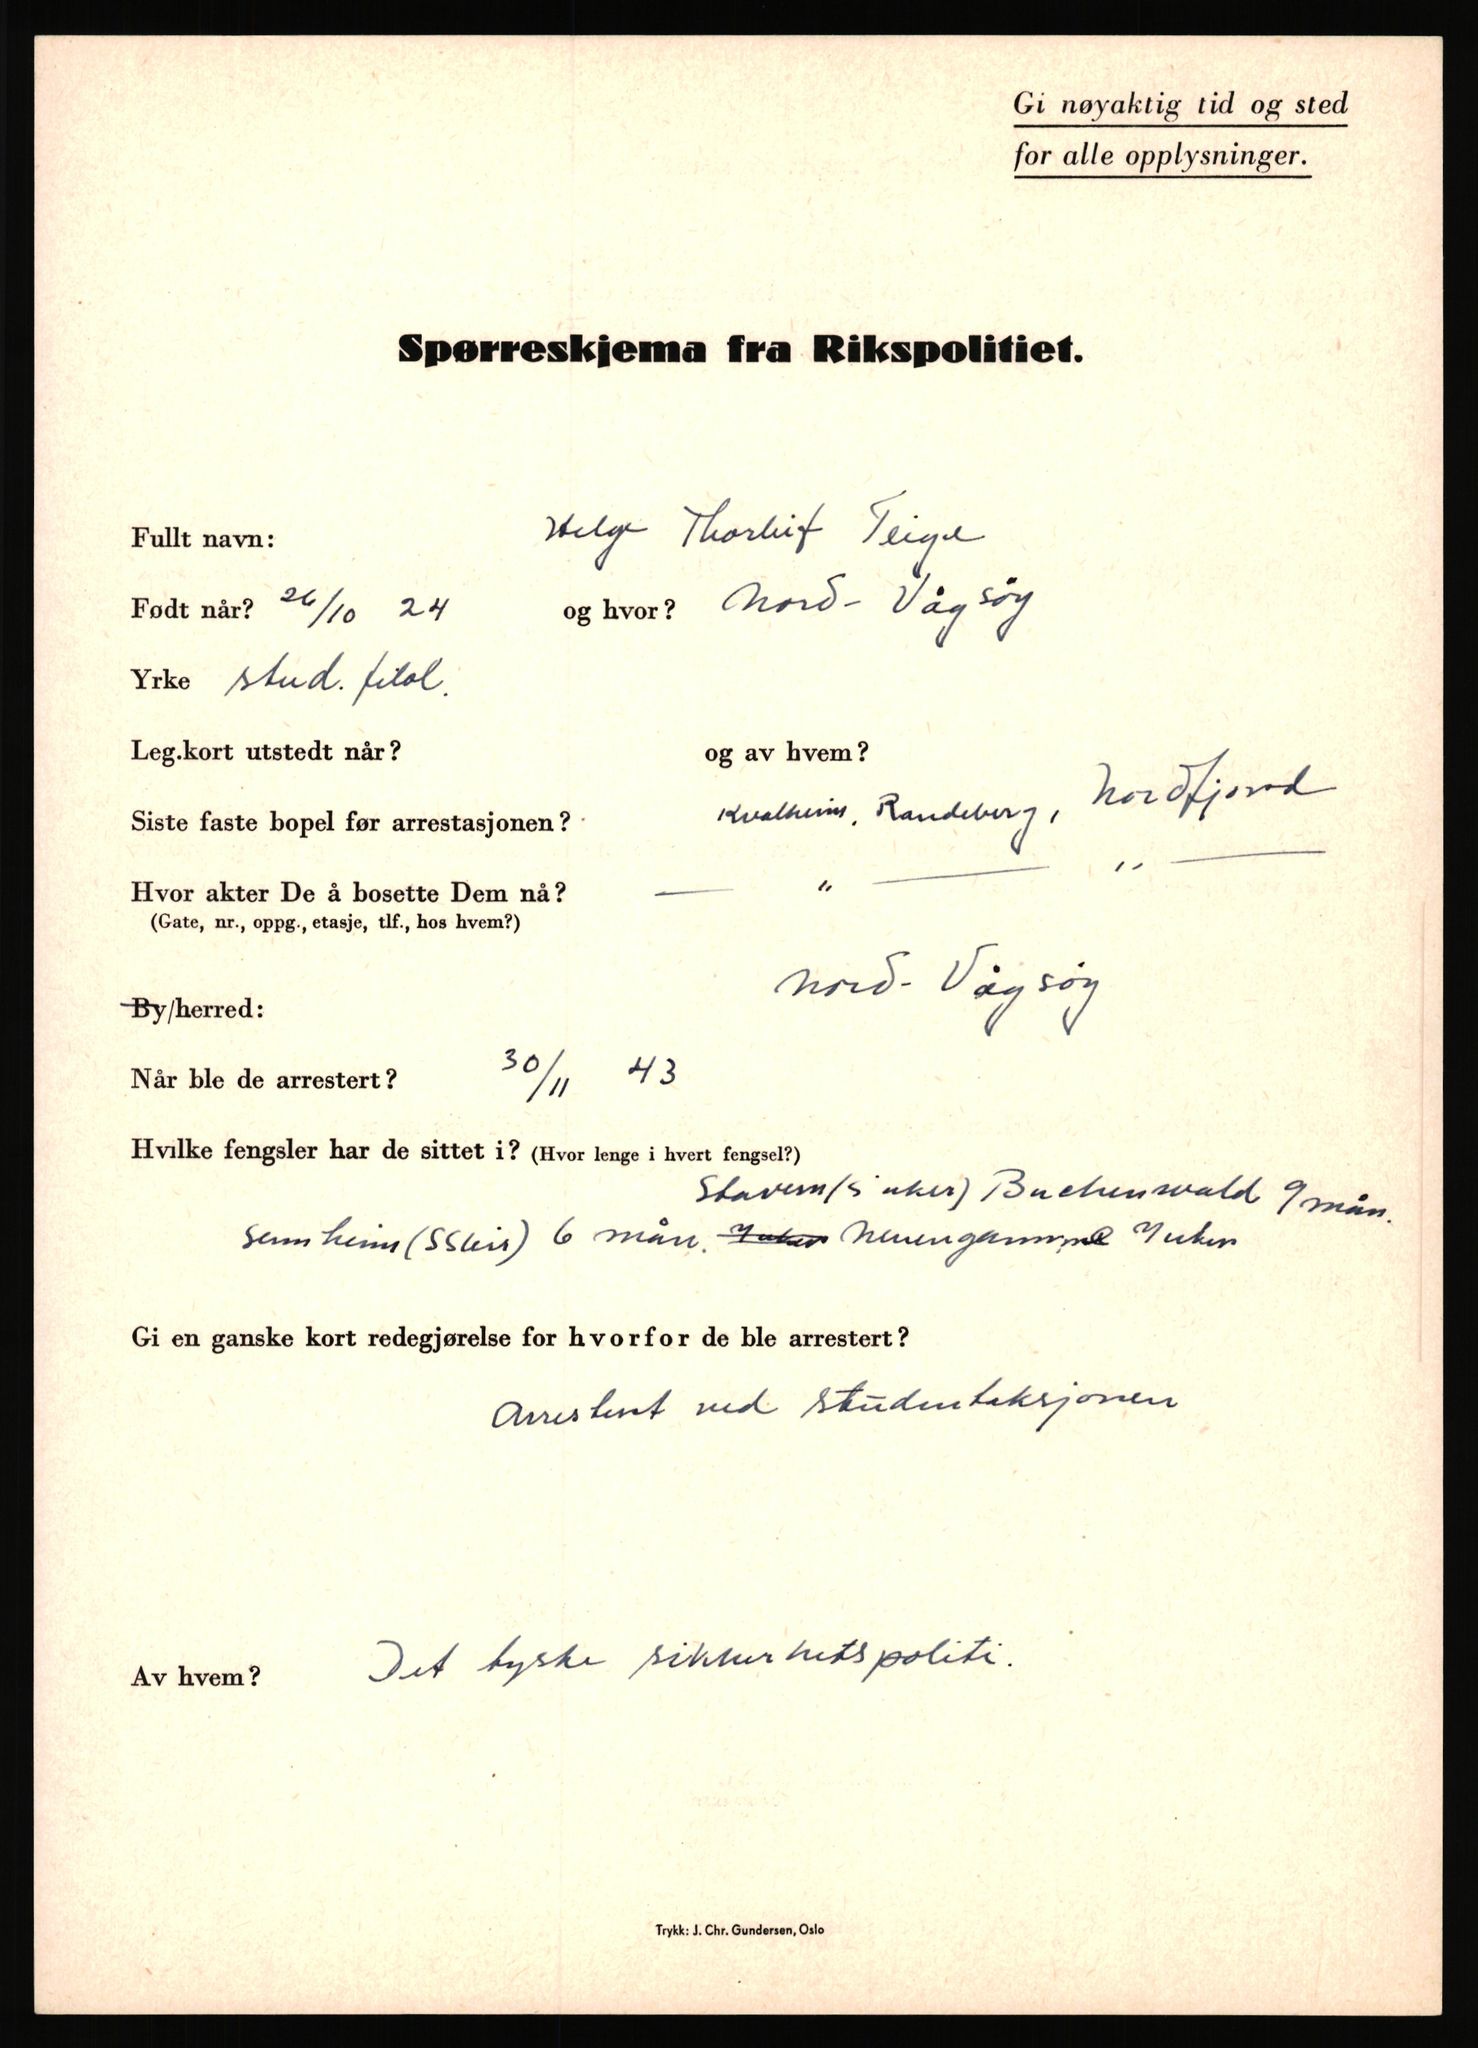 Gi nøyaktig tid og sted
for alle opplysninger.
Spørreskjema fra Rikspolitiet.
Fullt navn: Helge Thorleif Teige
Født når? 26/10 24 og hvor? Nord-Vågsøy
Yrke stud. filol.
Leg.kort utstedt når? og av hvem?
Siste faste bopel før arrestasjonen? Kvalheim, Raudeberg, Nordfjord
Hvor akter De å bosette Dem nå? — " — " —
(Gate, nr., oppg., etasje, tlf., hos hvem?)
By/herred: Nord-Vågsøy
Når ble de arrestert? 30/11 43
Hvilke fengsler har de sittet i? (Hvor lenge i hvert fengsel?)
Stavern (5 uker) Buchenwald 9 mån.
Sennheim (SSleir) 6 mån. Neuengamme 7 uker
Gi en ganske kort redegjørelse for hvorfor de ble arrestert?
Arrestert ved studentaksjonen
Av hvem? Det tyske sikkerhetspoliti.
Trykk: J. Chr. Gundersen, Oslo